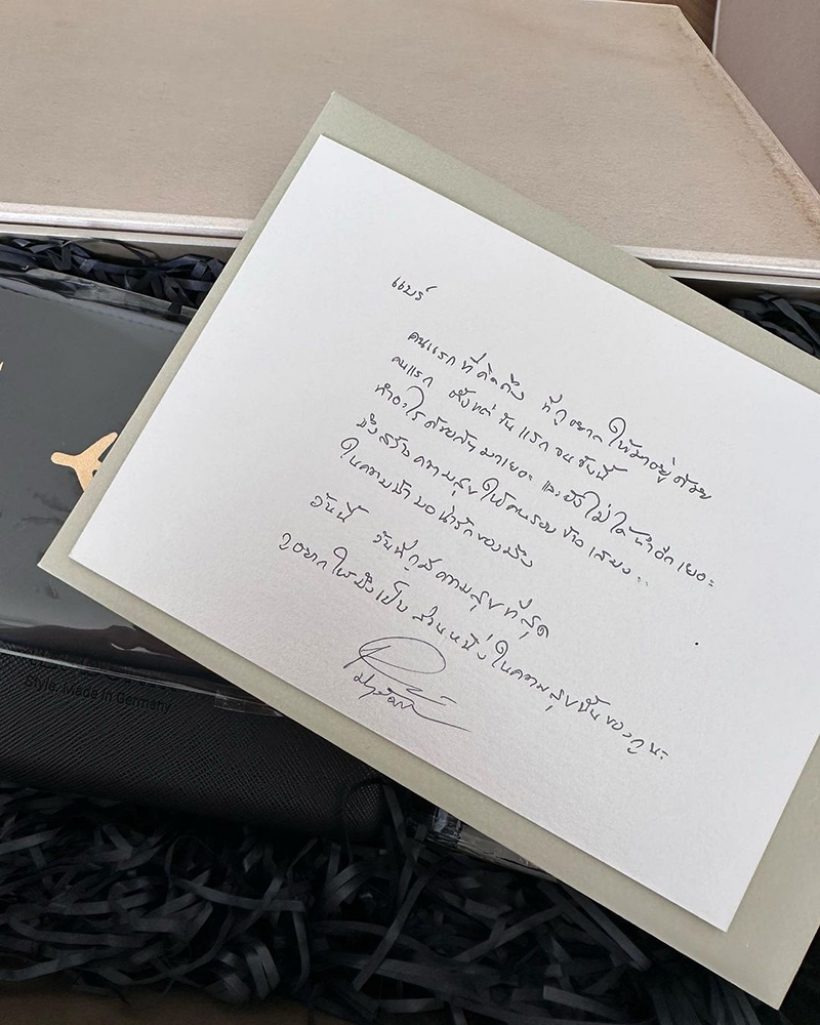 แบร์
คนแรกที่คิดถึง ที่กูอยากให้มาอยู่ด้วย
คนแรก ตั้งแต่วันแรกจนวันนี้
ทำอะไรด้วยกันมาเยอะ และยังไม่ได้ทำอีกเยอะ
มึงสร้างความสุขให้คนรอบข้างเสมอ..
ในความน่ารักของมึง
วันนี้ วันที่กูมีความสุขที่สุด
กูอยากให้มึงเป็นส่วนหนึ่งในความสุขนั้นของกูนะ
Style. Made in Germany